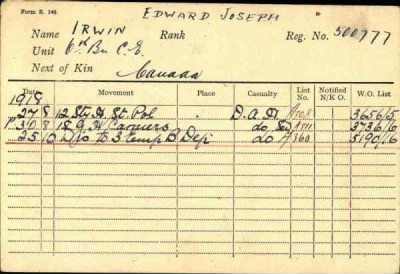 Form R. 149.
EDWARD JOSEPH
Name IRWIN Rank Reg. No. 500777
Unit 6th Bn C.E.
Next of Kin Canada
Date Movement Place Casualty List No. Notified N/K O. W.O. List
1918
27 8 12 Sty H. St. Pol D.A.H. 3656/5
30 8 18 G.H. Camiers do 3736/6
25 10 to 3 Camp B. Dep do 360 5190/6